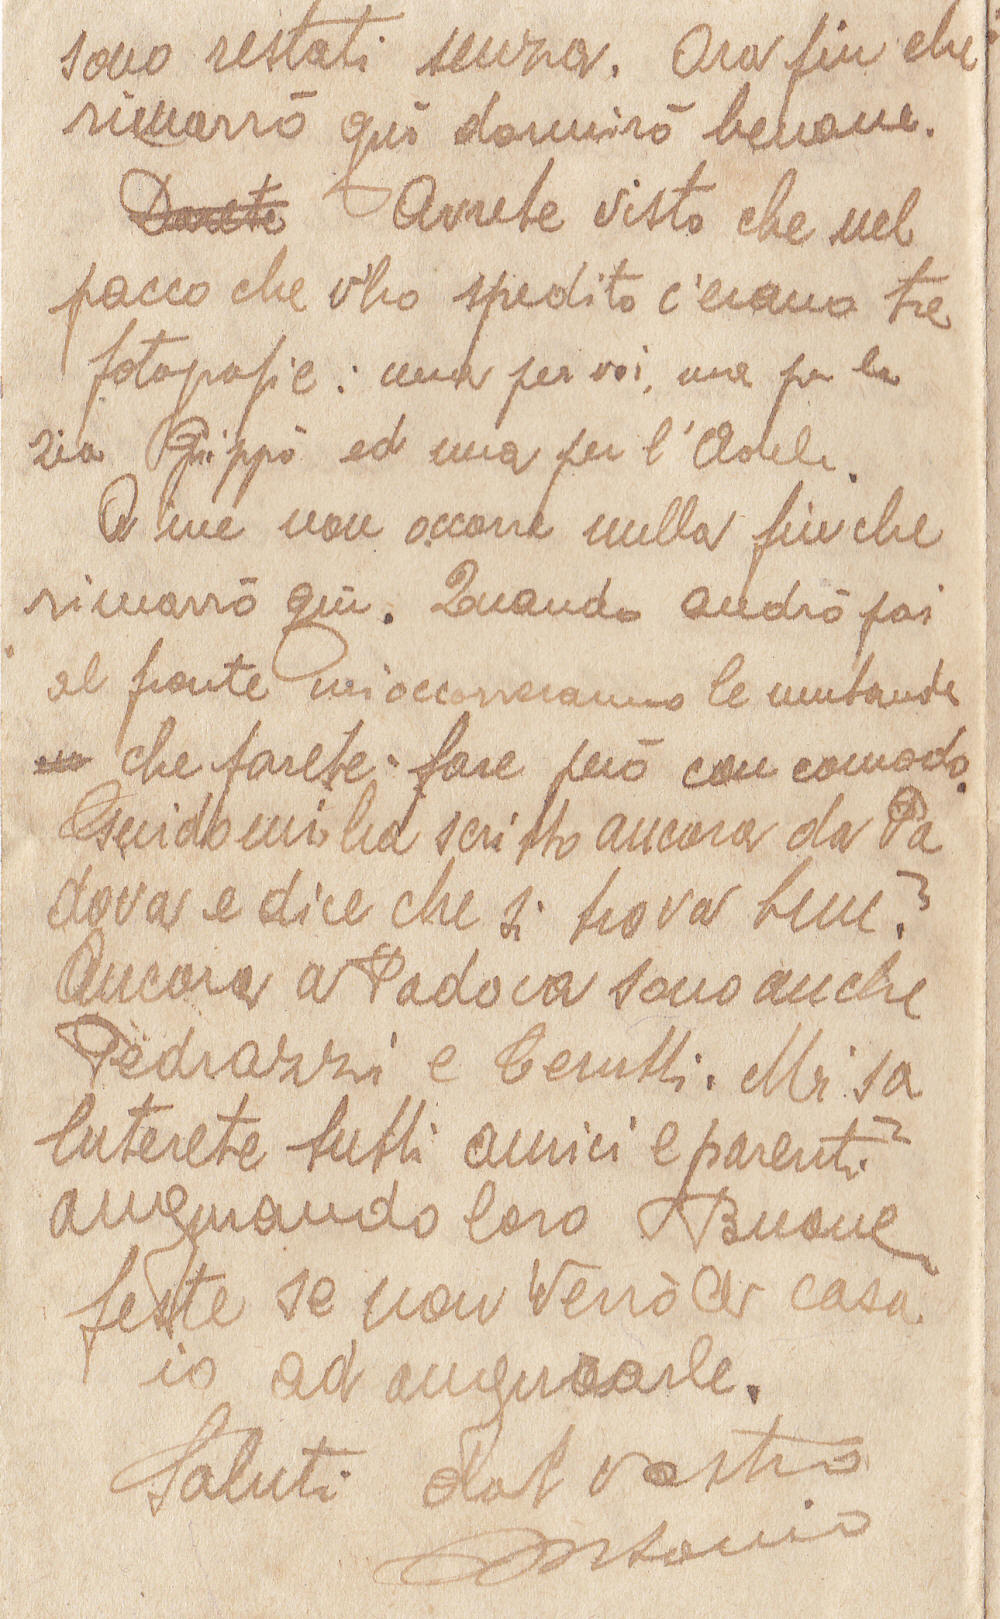 sono restati senza. Ora fin che
rimarrò quì dormirò benone.
Avrete visto che nel
pacco che v'ho spedito c'erano tre
fotografie: una per voi, una per la
zia Pippò ed una per l'Adele.
A me non occorre nulla finche
rimarrò quì. Quando andrò poi
al fronte mi occorreranno le mutande
che farete fare però con comodo.
Guido mi ha scritto ancora da Pa
dova e dice che si trova bene.
Ancora a Padova sono anche
Pedrazzi e Cerutti. Mi sa
luterete tutti amici e parenti
augurando loro Buone
feste se non verrò a casa
io ad augurarle.
Saluti dal vostro
Antonio